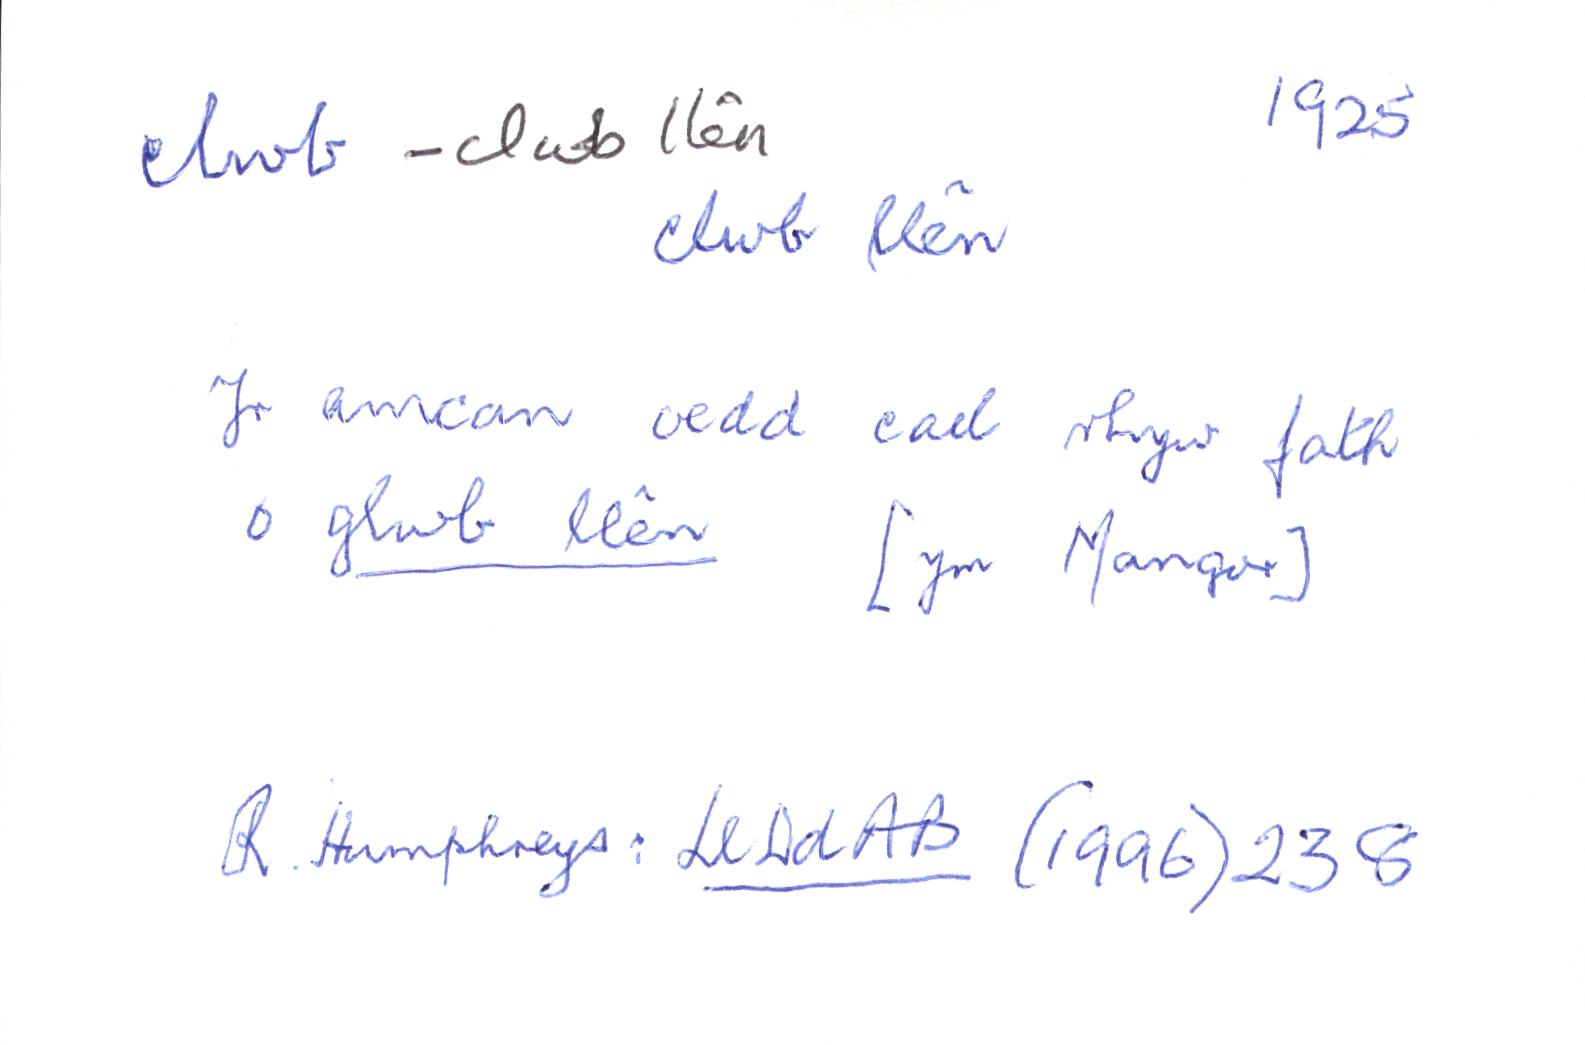 clwb - clwb llên 1925
clwb llên
Yr amcan oedd cael rhyw fath
o glwb llên [ym Mangor]
R. Humphreys: LlDdAB (1996) 238